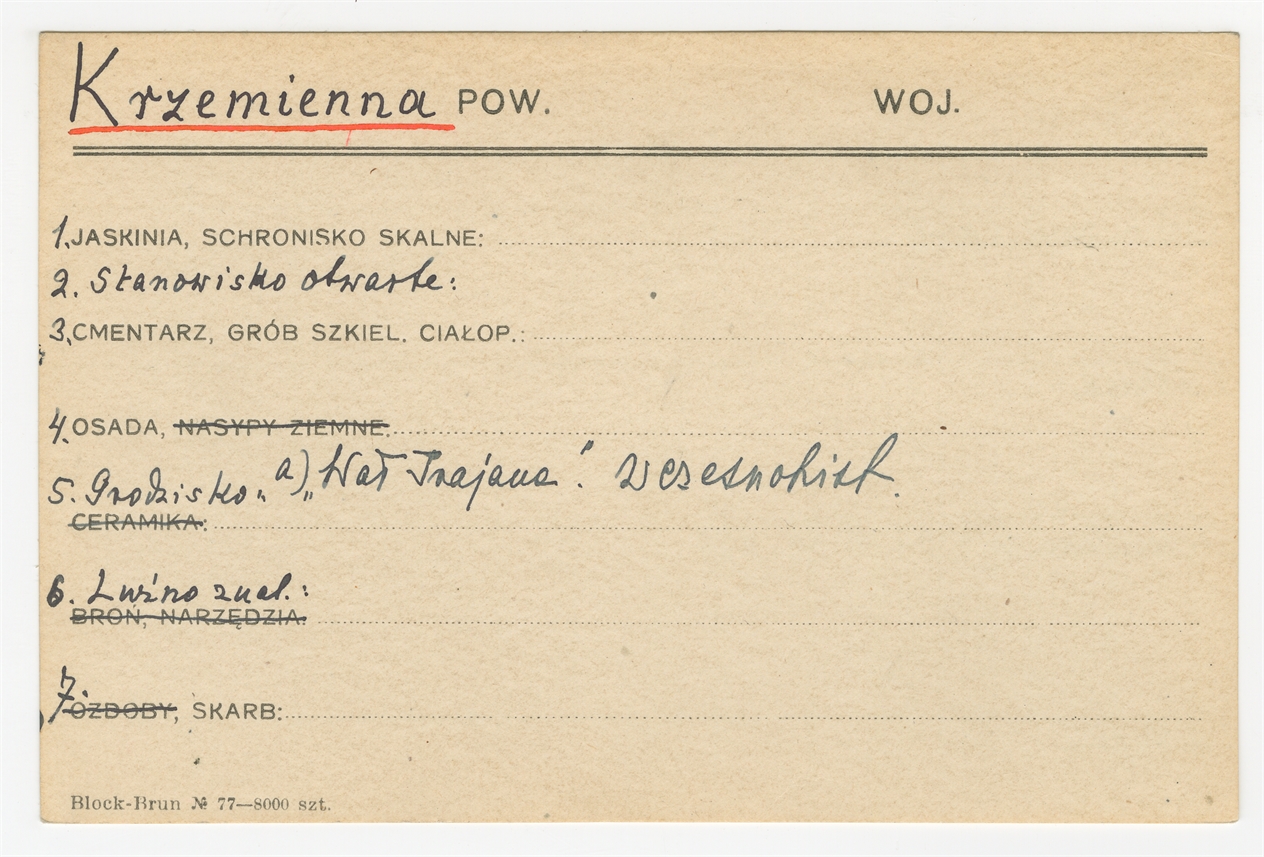 Krzemienna POW. WOJ.
1. JASKINIA, SCHRONISKO SKALNE:
2. Stanowisko otwarte:
3. CMENTARZ, GRÓB SZKIEL. CIAŁOP.:
4. OSADA, NASYPY ZIEMNE.
5. Grodzisko „a) „Wał Trajana”. wczesnohist.
CERAMIKA:
6. Luźno znal.:
BROŃ, NARZĘDZIA:
7. OZDOBY, SKARB:
Block-Brun № 77—8000 szt.